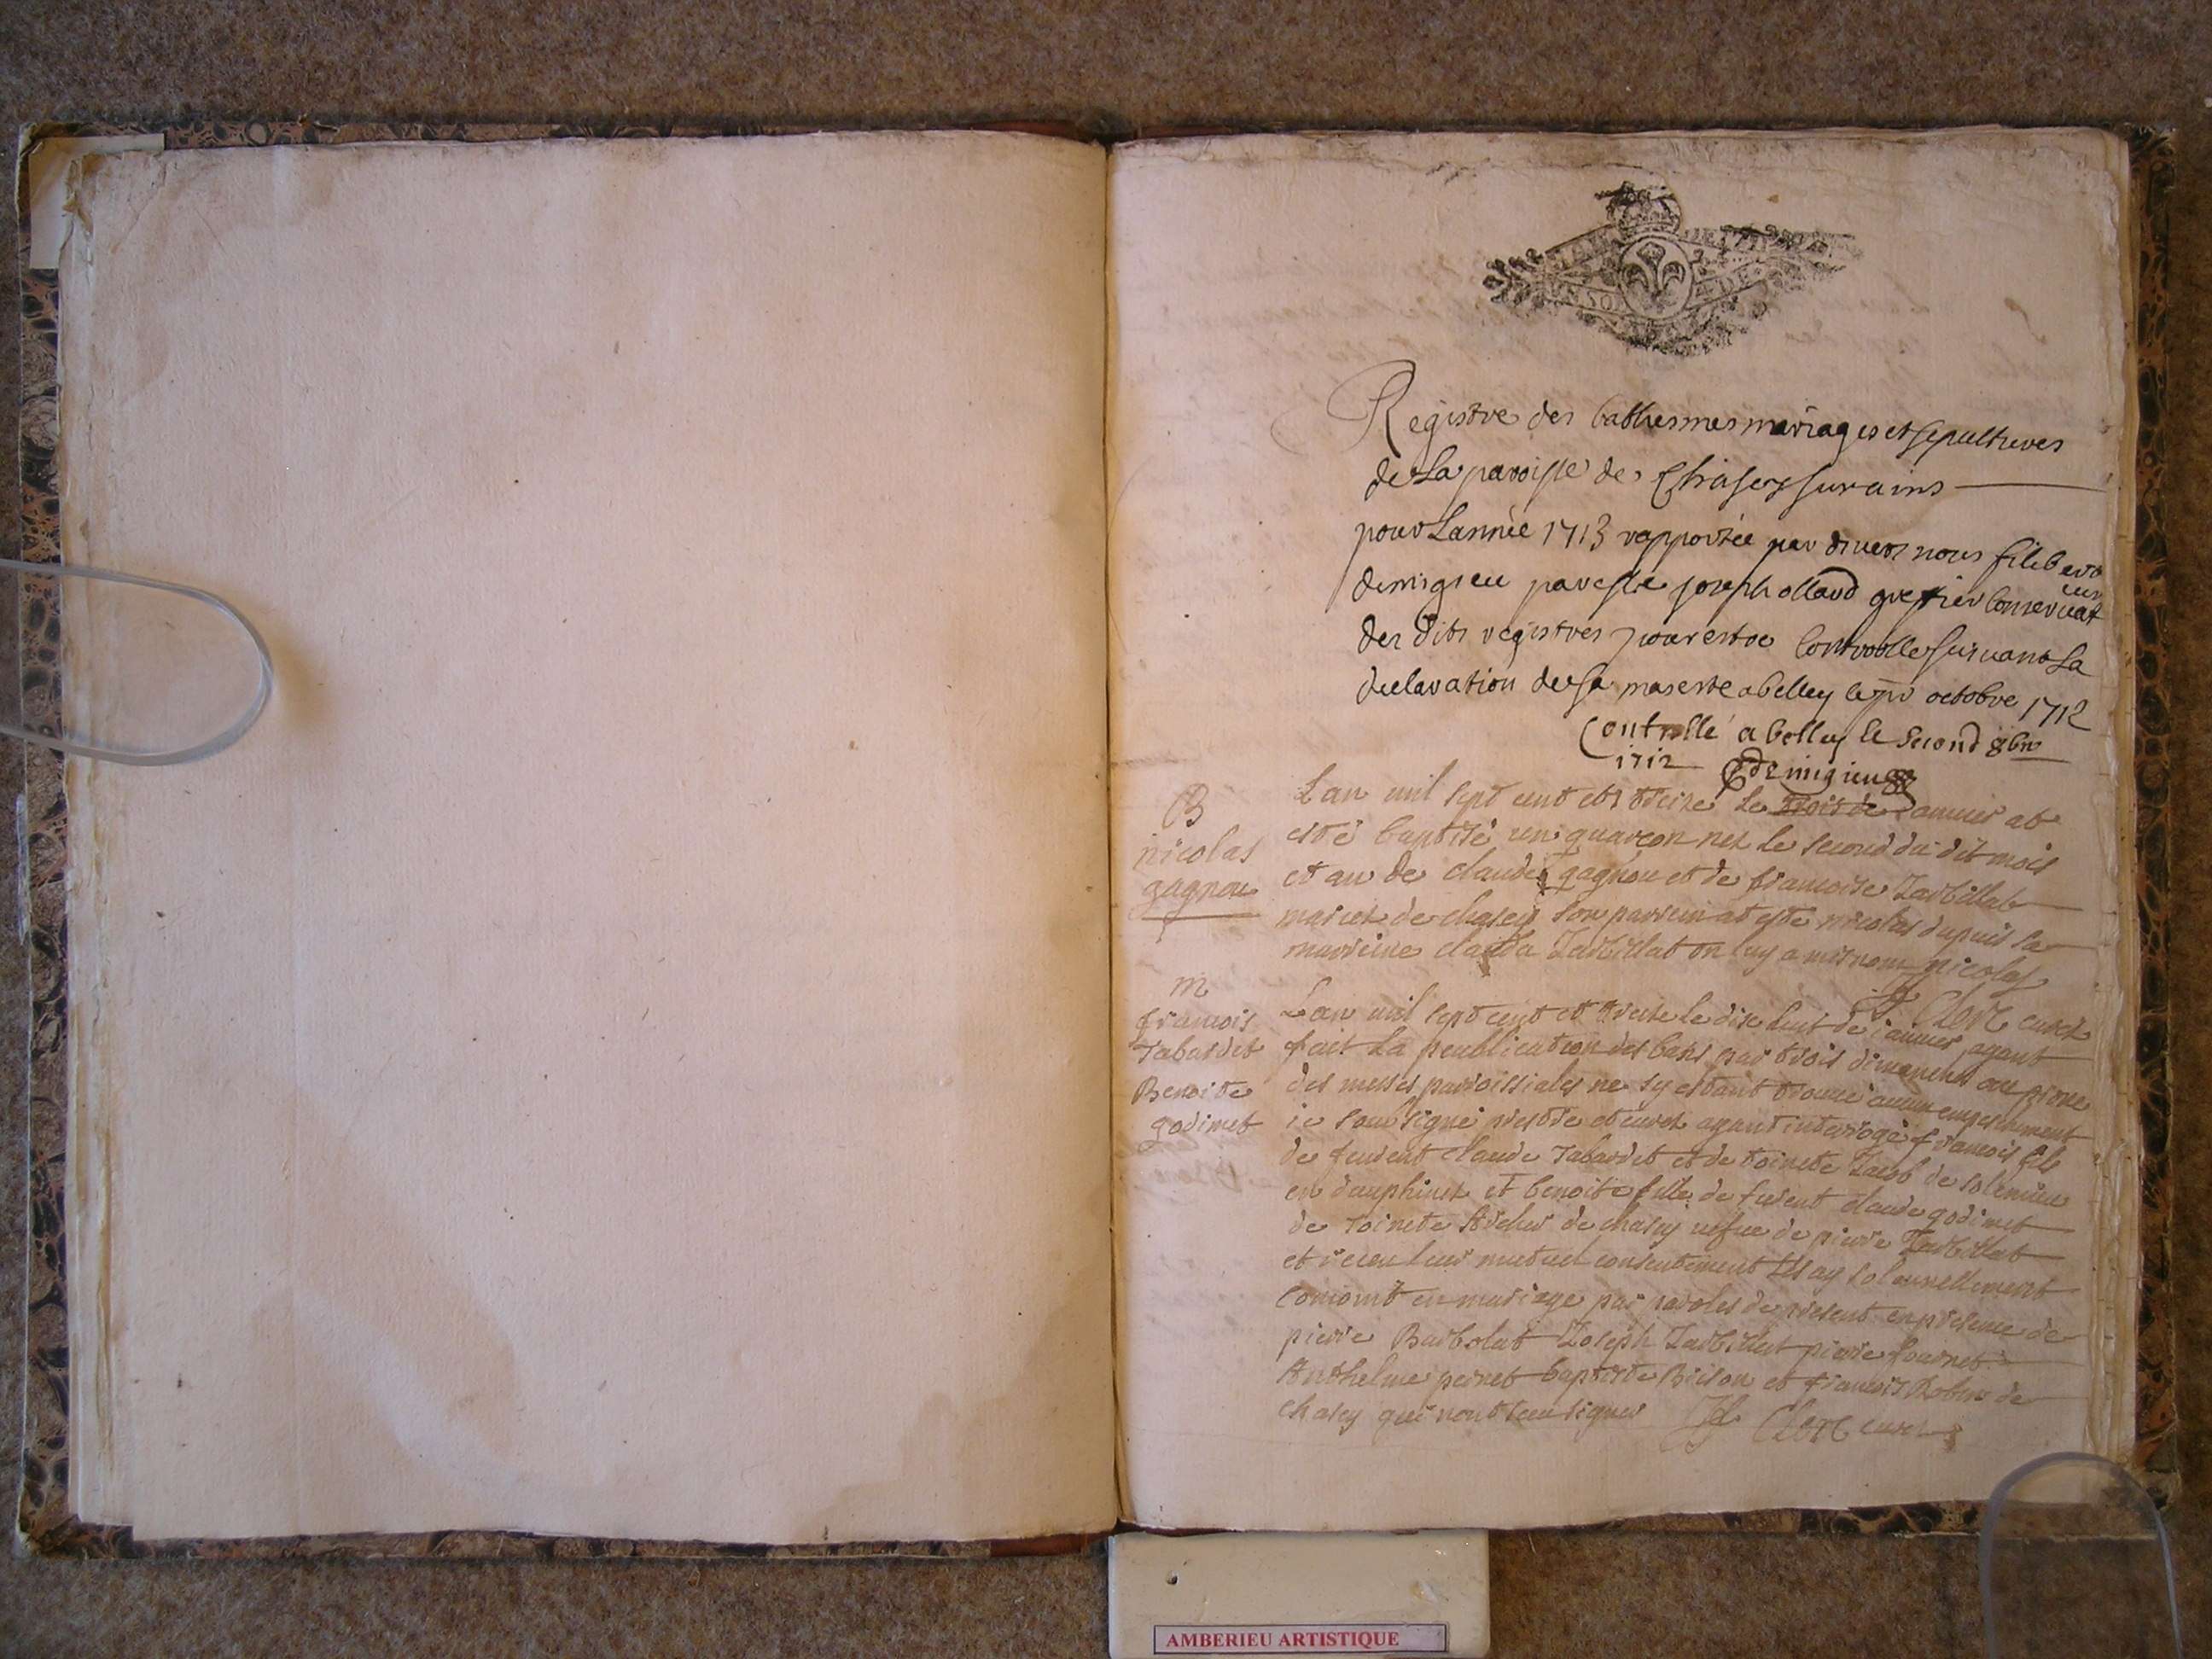 Registre des bathesmes mariages et sepultures
de La paroisse de Chasey sur ains
pour Lannée 1713 rapportée par devers nous filibert
demigieu par Mre joseph ollard greffier Conservateur
des dits registres pour estre Controolle suivant La
declaration de sa maieste a belley le pr octobre 1712
Controllé a belley le second 8bre
1712 Demigieu
B
nicolas
gagnon
Lan mil sept cent et treize le trois de Januier at
esté baptisé un guarcon nez le second du dit mois
et an de claude gagnon et de francoise Tarbillat
mariez de chasey son parrein at esté nicolas dupuis la
marreine clauda Tarbillat on luy a mis nom nicolas
Clerc curez
m
francois
Tabardet
Benoite
godinet
Lan mil sept cent et treize le dix huit de ianuier ayant
fait La peublication des bans par trois dimenches au prone
des messes parroissiales ne sy estant trouué aucun empeschement
ie soubsigné prestre et curez ayant interrogé francois fils
de feu claude Tabardet et de toinete Jacob de solemieu
en dauphinez et benoite fille de claude godinet
de toinete Archer de chasey uefue de pierre Tarbillat
et receu leur mutuel consentement Les ay solennellement
conioint en mariage par paroles de present en presence de
pierre Barbolat Joseph Tarbillat pierre fournet
Anthelme peinet baptiste Brison et francois Robin de
chasey qui nont sceu signer Clerc curez
AMBERIEU ARTISTIQUE